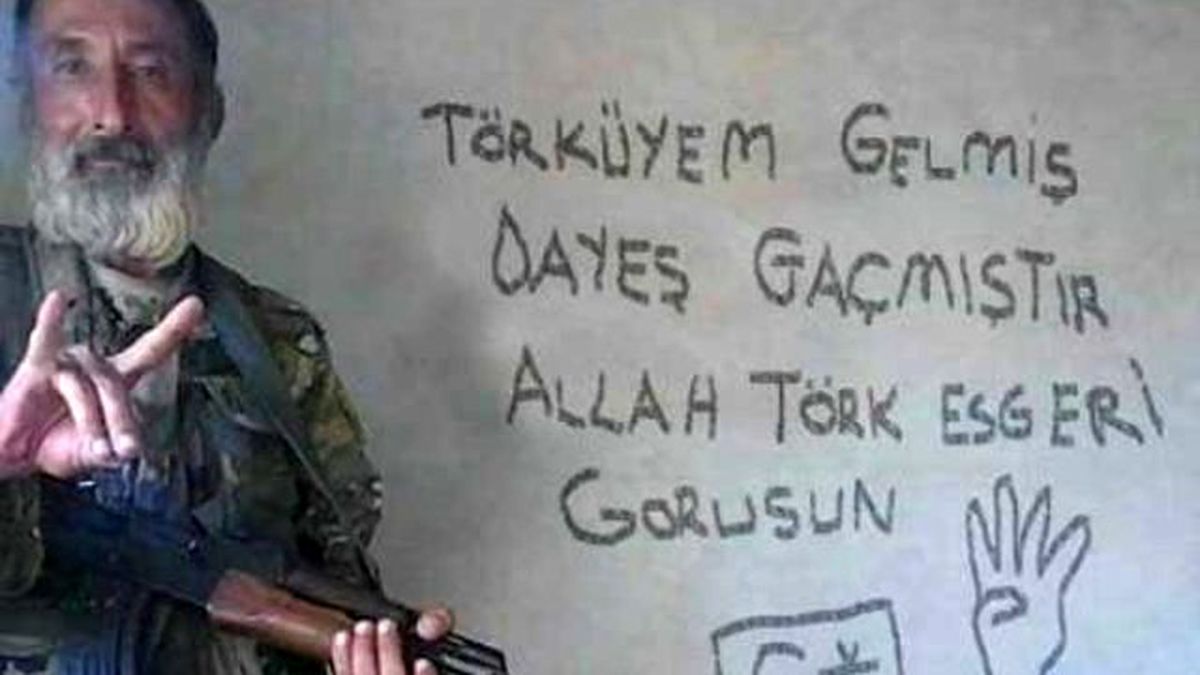 TÖRKÜYEM GELMİŞ
DAYEŞ GAÇMIŞTIR
ALLAH TÖRK ESGERİ
GORUSUN